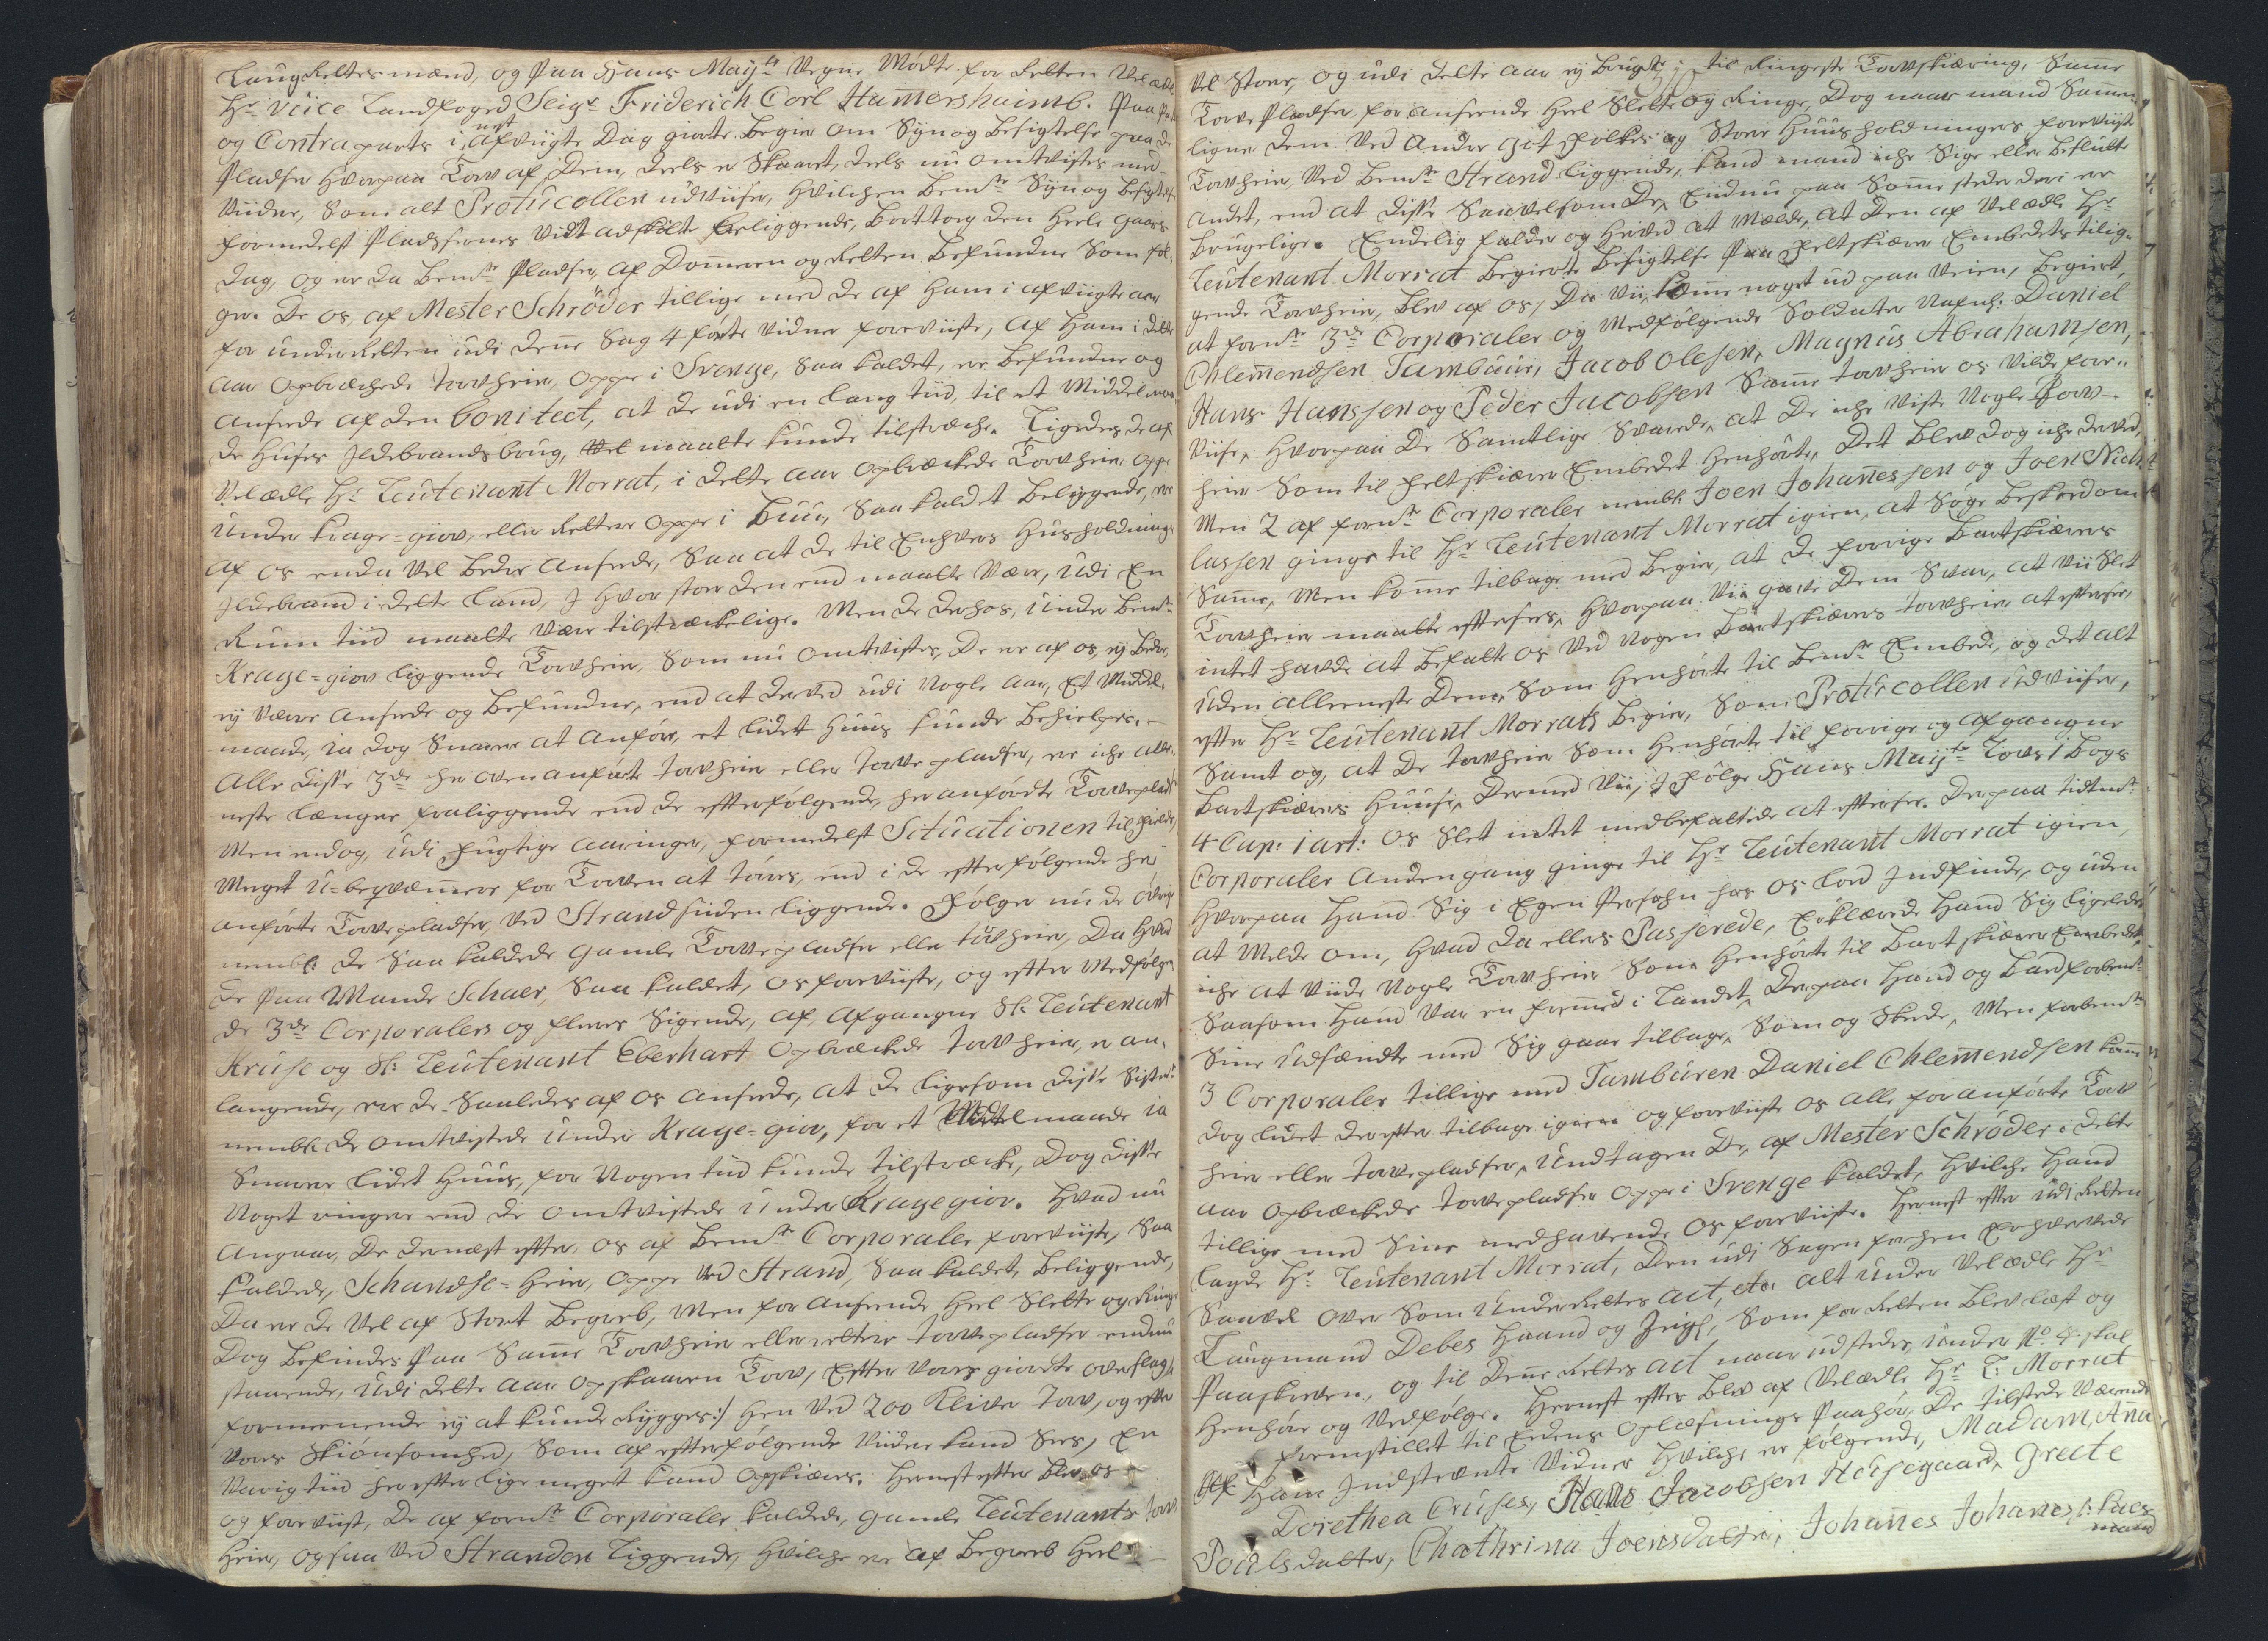 Laugrettesmænd, og Paa Hans Maysts Vegne Mødte for Retten Velædle
Hr Vüce Landfoged Seigr Friderich Carl Hamershaimb. Paa Part
og Contraparts i, nest afvigte Dag giorte Begier om Syn og Besigtelse paa de
Pladser hvorpaa Torv af Dem, deels er Skaaret, deels nu omtvistes med
Viidere, Som alt Protucollen udviiser, hvilchen Bemte Syn og Besigtelse
formedelst Pladsernes Vidt adskilte beliggende, borttog den heele gaars
dag, og er da Bemte Pladser, af Domeren og Retten Befundne Som føl,
ger. De os, af Mester Schrøder tillige med de af ham i afvigte aar
for underRetten udi denne Sag 4 førte Vidner foreviiste, af ham i dette
aar opbrechede torvheier, oppe i Svenge, Saa kaldet, er befundne og
ansete af den bonitect, at de udi en lang tiid, til et Middelmaa
de Huses Jldebrandsbrug, maatte kunde tilstreche. Ligeledes de af
Velædle Hr Leutenant Morrat, i dette aar opbreckede Torvheier oppe
under Krage-giov, eller Rettere oppe i Buu, Saa kaldet beliggende, er
af os endu Vel bedre ansete, Saa at de til Enhvers Husholdnings
Jldebrand i dette Land, J hvor stor den end maatte Være, udi En
Rum tiid maatte Være tilstreckelige. Men de derhos, under Bemte
Krage-giov liggende Torvheier, Som nu omtvistes, De er af os, ej bedre,
ej Værre ansete og befundne, end at derved udi Nogle aar, Et Middel-
maade, ia dog Snarere at anføre, et lidet Huus kunde behielpes.-
Alle disse 3de her ovenanførte torvheier eller torvepladser, er iche alle-
neste længere fraliggende end de efterfølgende, heranførdte Torvepladser
Men endog, udi fugtige aaringer, formedelst Situationen til fields,
Meget u-beqvemere for Torven at tørres, end i de efterfølgende her
anførte Torvepladser, ved Strandsiiden liggende. Følger nu de øvrige
nembl: de Saa kaldede gamle Torvepladser eller torvheier, Da hvad
de Paa Mande Schaer, Saa kaldet, os foreviiste, og efter Medfølgen
de 3de Corporalers og fleres Sigende, af, afgangne Sl: Leutenant
Kruse og Sl: Leutenant Eberhart opbreckede torvheier, er an-
langende, er de Saaledes af os ansete, at de ligesom disse Siste
nembl: de omtvistede under Krage-giov, for et Middelmaade ia
Snarere lidet Huus, for Nogen tiid kunde tilstrecke, dog disse
Noget ringere end de omtvistede under Kragegiov. Hvad nu
angaar, De dernæst efter, os af Bemte Corporaler foreviiste, Saa
kaldede, Schandse-Heier, oppe ved Strand, Saa kaldet, beliggende,
Da er de Vel af Stort begreb, Men for ansende heel Slette og Ringe
Dog befindes Paa Same Torvheier eller rettere torvepladser endnu
staaende, udi dette aar opskaaren Torv, /: Efter Vores giorte overslag
formenende ej at kunde rygges :/ hen ved 200 Kliver torv, og efter
Vores Skiønsomhed, Som af efterfølgende Viidere kand Sees, En
Varig tiid herefter lige meget kand opskiæres. Hernest efter blev os
og foreviist, De af fornte Corporaler kaldede, gamle Leutenants torv
heier, ogsaa ved Stranden liggende, hvilche er af begreb heel
Vel Stor, og udi dette aar ej brugte til Ringeste Torvskiæring, Same
Torve Pladser for ansende heel Slette og Ringe, Dog naar mand Samen
ligner dem ved andre got folkes og Store Huus holdningers foreviiste
Torvheier, ved Bemte Strand liggende, kand mand iche Sige eller beslutte
andet, end at disse Saavelsom De, Endnu paa Same steder deri er
brugelige. Endelig falder og herved at Melde, at den af Velædle Hr
Leutenant Morrat begierte Besigtelse Paa Feltskiærer Embedets tilig-
gende Torvheier, blev af os, Da Vii kome noget ud paa Veien, begiert,
at fornte 3de Corporaler og Medfølgende Soldater Nafnl: Daniel
Chlemendsen Tambuur, Jacob Olesen, Magnus Abrahamsen,
Hans Hanssen og Peder Jacobsen Same torvheier os Vilde fore-
Viise, hvorpaa De Samtlige Svarede, at De iche Viste Nogle Torv-
heier Som til Feltskiærer Embedet henhørte, Det blev dog iche derved,
Men 2 af fornte Corporaler nembl: Joen Johanessen og Joen Nich
lassen ginge til Hr Leutenant Morrat igien, at Søge beskeed om
Same, Men kome tilbage med begier, at de forrige Bartskiærers
Torvheier maatte efterses, hvorpaa Vii gave dem Svar, at Vii Slet
intet havde at befatte os ved Nogen Bartskiærers torvheier at efterse,
uden alleeneste dem, Som henhørte til Bemte Embede, og det alt
efter Hr Leutenant Morrats begier, Som Protucollen udviiser,
Samt og, at De torvheier Som henhørte til forrige og afgangne
Bartskiærers Huuse, dermed Vii, J følge Hans Maysts Lovs 1 bogs
4 Cap: 1 art: os Slet intet medbefattede at efterse. Derpaa tidtnte
Corporaler anden gang ginge til Hr Leutenant Morrat igien,
hvorpaa hand Sig i Egen Persohn hos os lod Jndfinde, og uden
at Melde om, hvad da ellers Passerede, Erklærede hand Sig ligeledes
iche at Viide Nogle Torvheier Som henhørte til Bartskiærer Embedet,
Saasom hand Var en fremed i Landet, Derpaa hand og bad forbemte
Sine udsendte med Sig gaae tilbage, Som og Skede, Men forbemte
3 Corporaler tillige med Tambüren Daniel Chlemendsen kome
dog lidet derefter tilbage igien og foreviiste os alle foranførte Torv
heier eller torvepladser, undtagen De, af Mester Schrøder i dette
aar opbreckede torvepladser oppe i Svenge kaldet, hvilche hand
tillige med Sine medhavende os foreviiste. Hernest efter udi Retten
lagde Hr Leutenant Morrat, Den udi Sagen forhen Erhvervede
Saavel over Som underRettes Act, etc. alt under Velædle Hr
Laugmand Debes Haand og Zeigl, Som for Retten blev læst og
Paaskreven, og til denne Rettes Act naar udstedes, under No 4 skal
henhøre og Vedfølge. Hernest efter blev af Velædle Hr L: Morrat
fremstillet til Eedens oplesnings Paahør, De tilstede Værende
af ham Jndstevnte Vidner hvilche er følgende, Madam, Ana
Dorethea Cruses, Hans Jacobsen Husegaard, Grecte
Poulsdatter, Chathrina Joensdatter, Johanes Johanes/: Kaes
mand